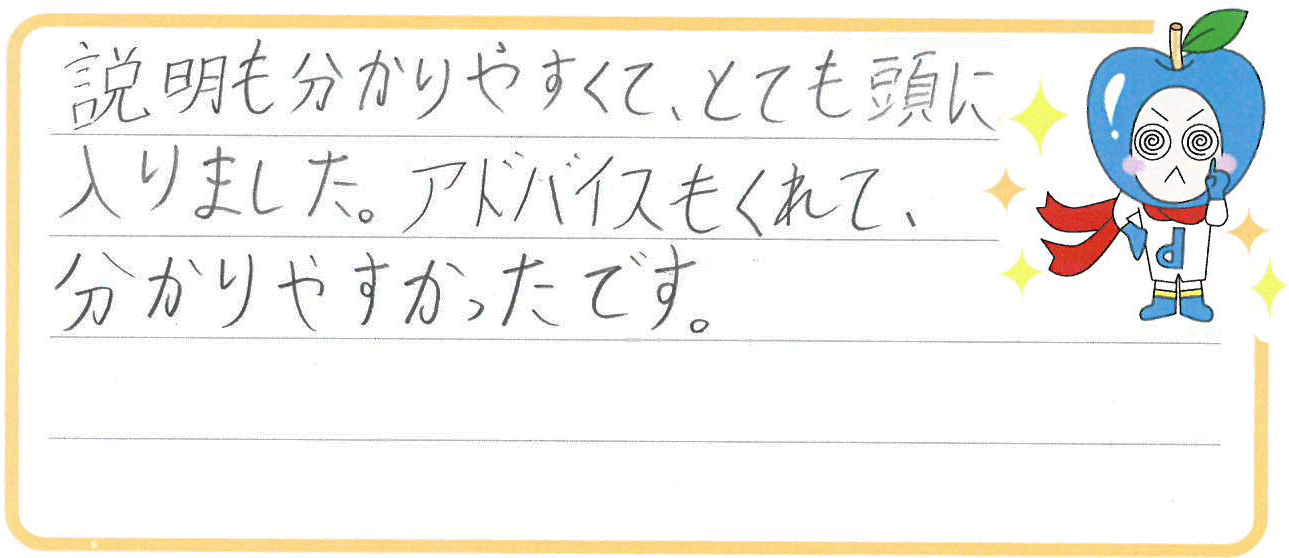 説明も分かりやすくて、とても頭に
入りました。アドバイスもくれて、
分かりやすかったです。
d